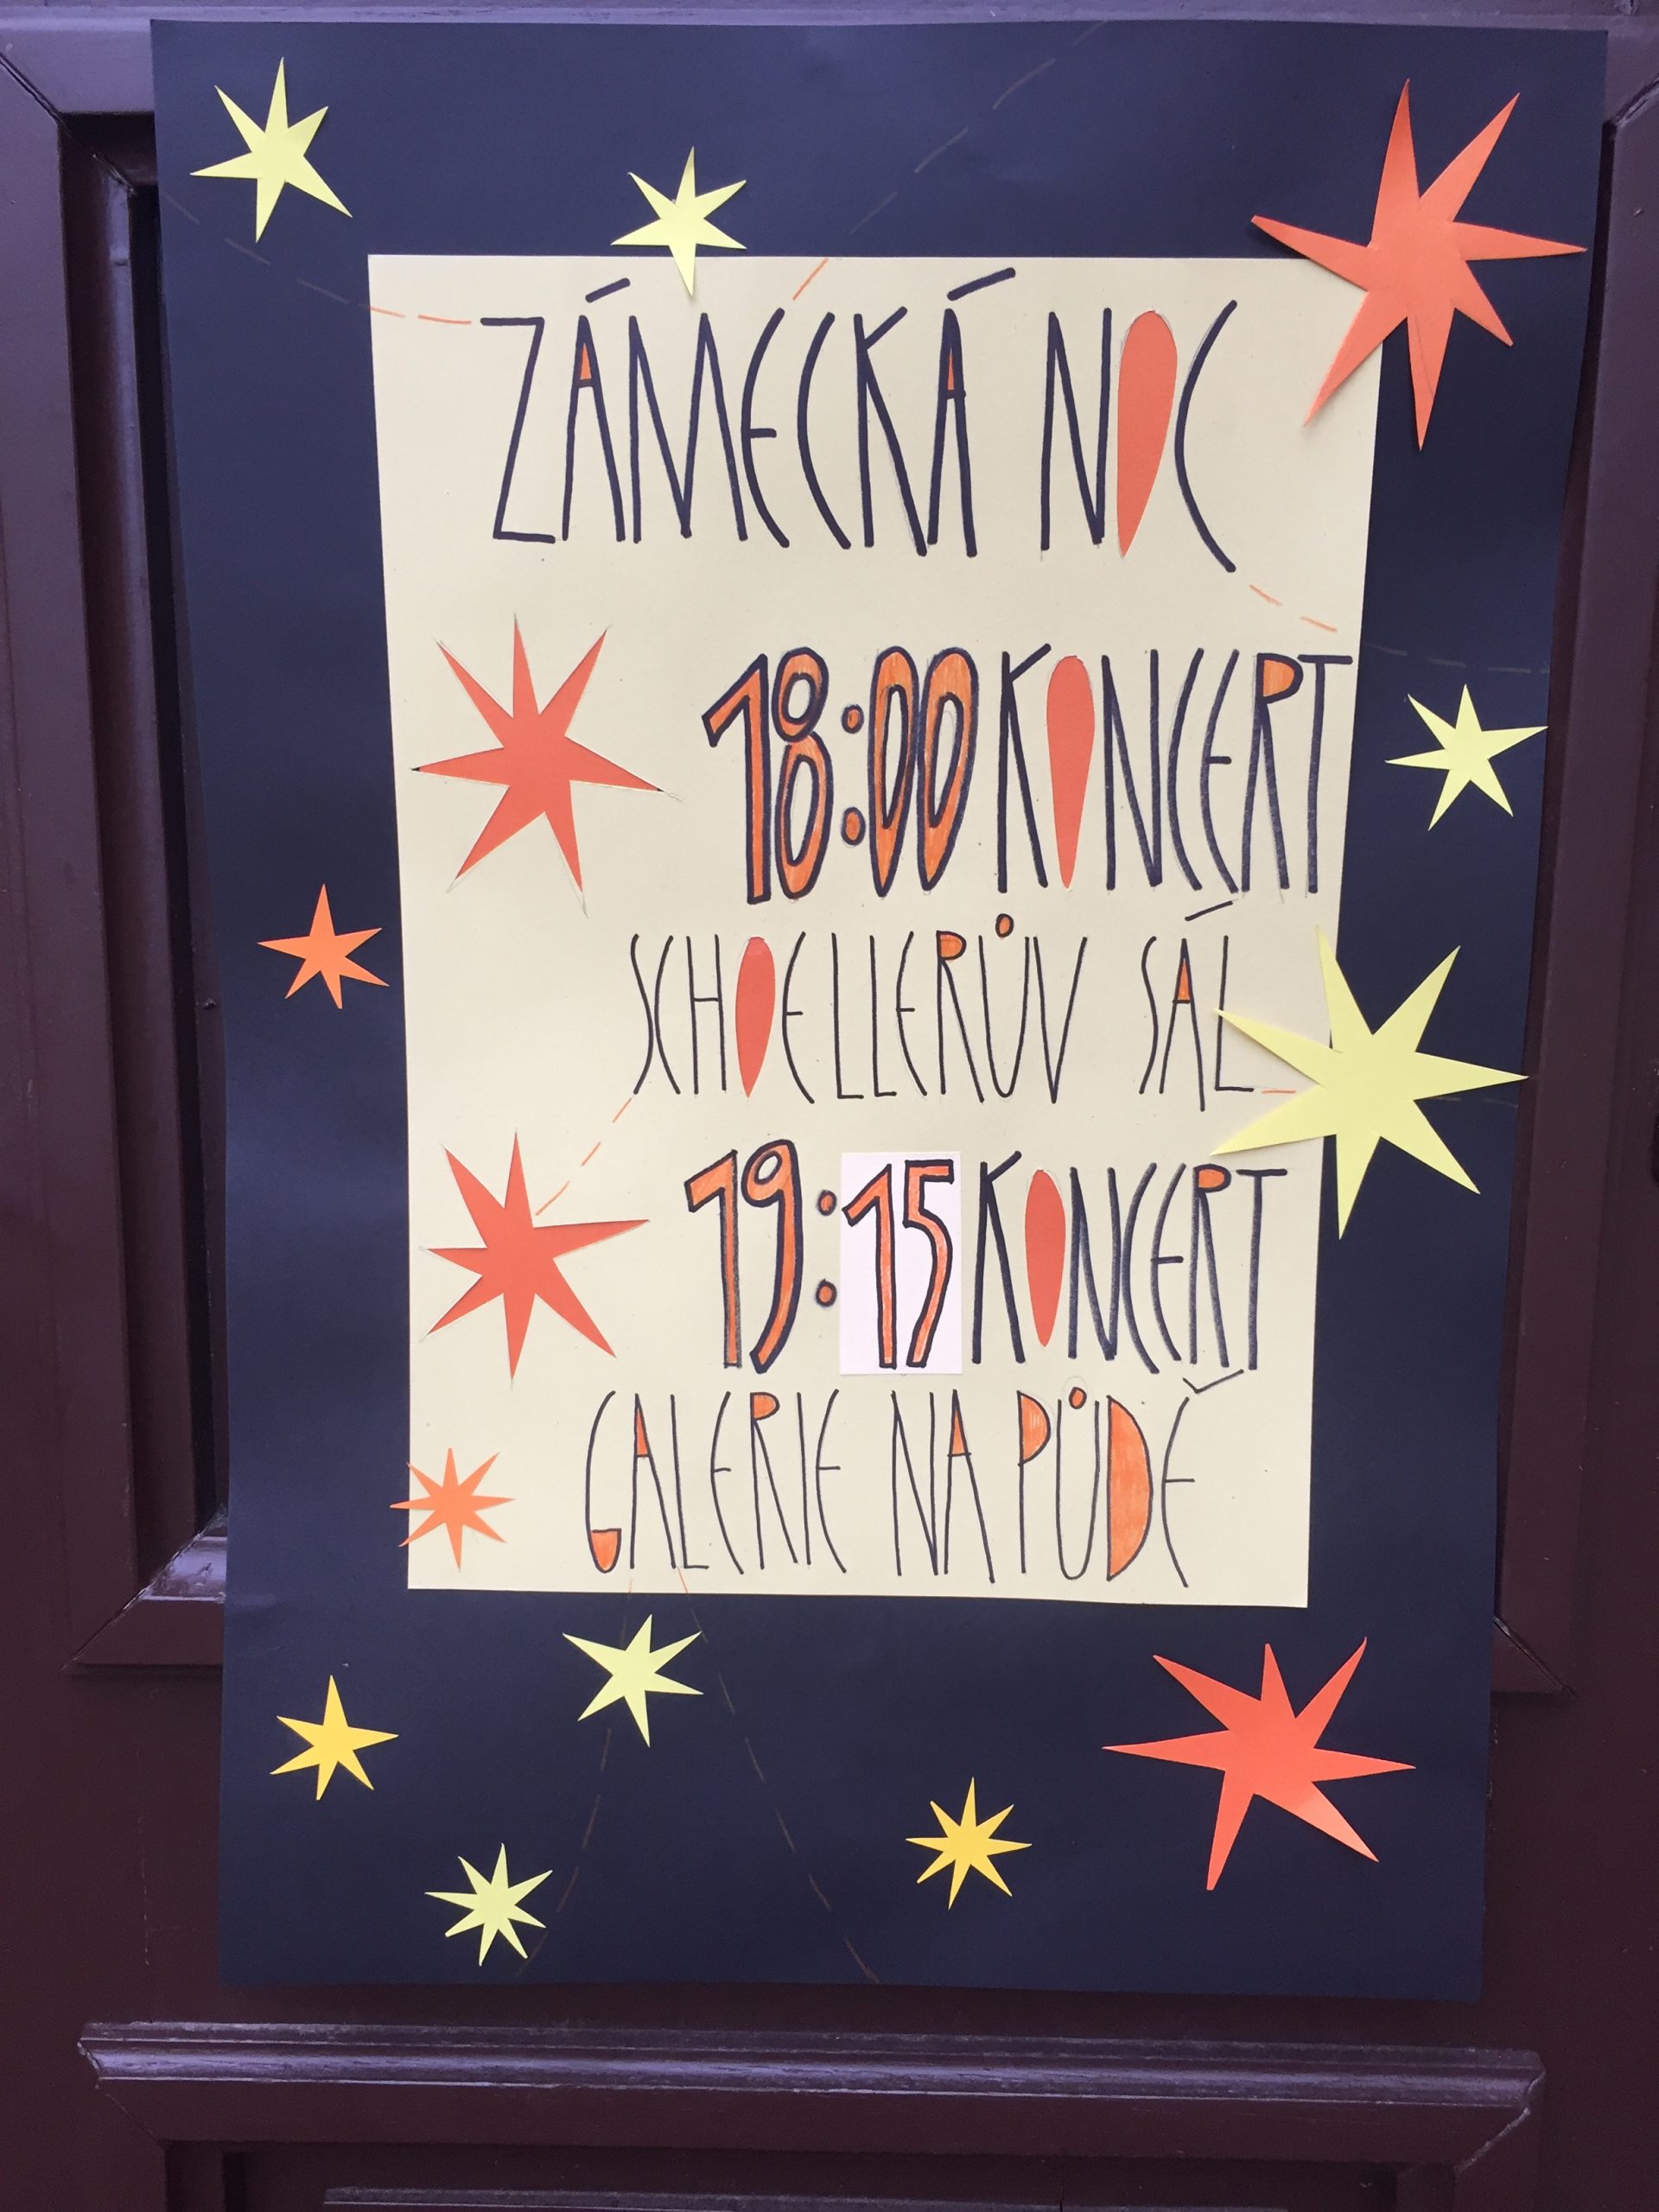 ZÁMECKÁ NOC
18:00 KONCERT
SCHOELLERŮV SÁL
19:15 KONCERT
GALERIE NA PŮDĚ